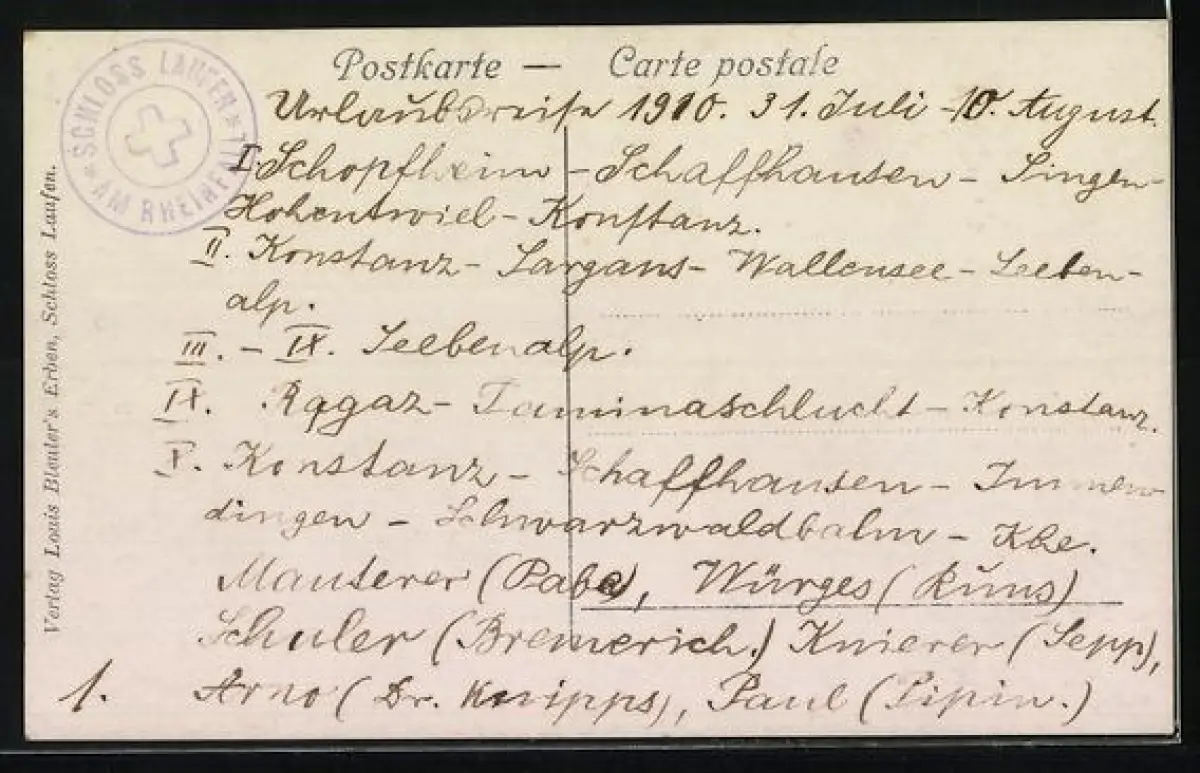 Postkarte — Carte postale
SCHLOSS LAUFEN
AM RHEINFALL
Urlaubsreise 1910. 31. Juli - 10. August.
I. Schopfheim - Schaffhausen - Singen-
Hohentwiel - Konstanz.
II. Konstanz - Sargans - Wallensee - Seeben-
alp.
III. - IX. Seebenalp.
IX. Ragaz - Taminaschlucht - Konstanz.
X. Konstanz - Schaffhausen - Immen-
dingen - Schwarzwaldbahn - Khe.
Mauterer (Pabe), Würges (Runs)
Schuler (Bremerich.) Knierer (Sepp),
1. Arno (Dr. Knipps), Paul (Pipin.)
Verlag Louis Bleuler's Erben, Schloss Laufen.